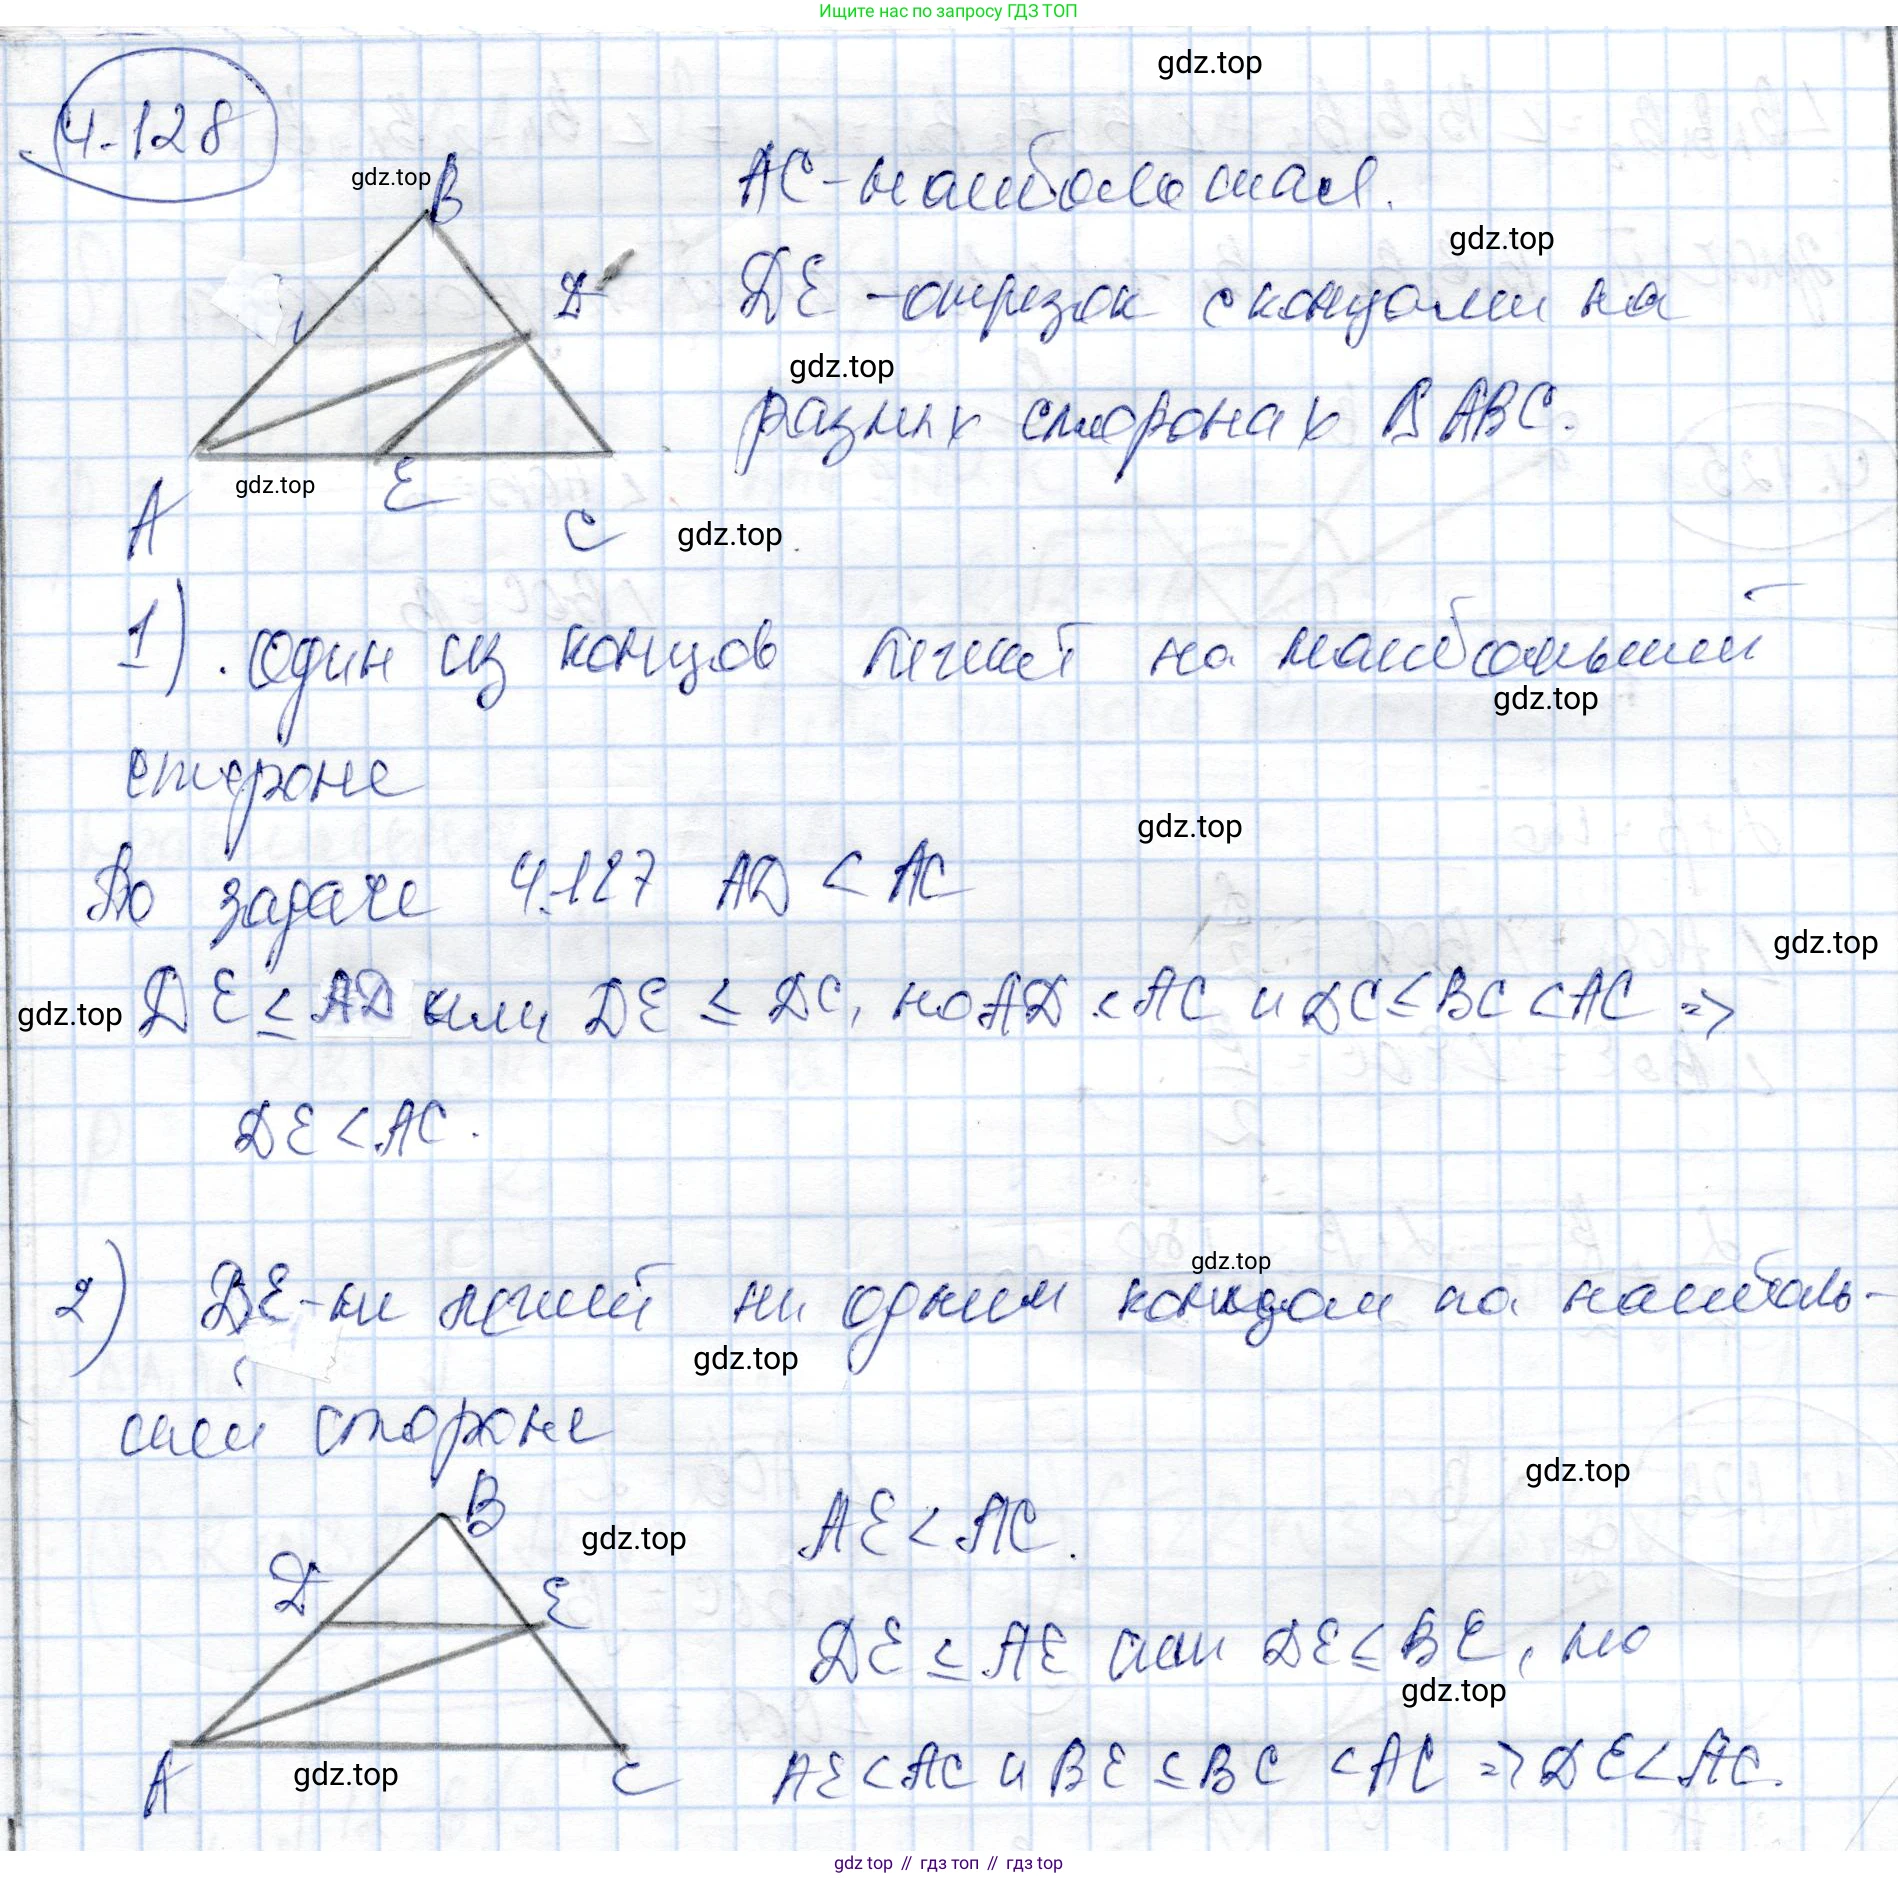 Ищите нас по запросу ГДЗ ТОП
gdz.top
4.128
gdz.top
B
AC - наибольшая.
gdz.top
D
DE - отрезок с концами на
gdz.top
разных сторонах ABC.
gdz.top
E
A
C
gdz.top
1). Один из концов лежит на наибольшей
gdz.top
стороне
gdz.top
По задаче 4.127 AD < AC
gdz.top
gdz.top
DE ≤ AD или DE ≤ DC, но AD < AC и DC ≤ BC < AC =>
DE < AC.
gdz.top
2) DE - не лежит ни одним концом на наиболь-
gdz.top
шей стороне
gdz.top
B
gdz.top
AE < AC.
D
E
DE ≤ AE или DE ≤ BE, но
gdz.top
A
gdz.top
C
AE < AC и BE ≤ BC < AC => DE < AC.
gdz top // гдз топ // гдз top